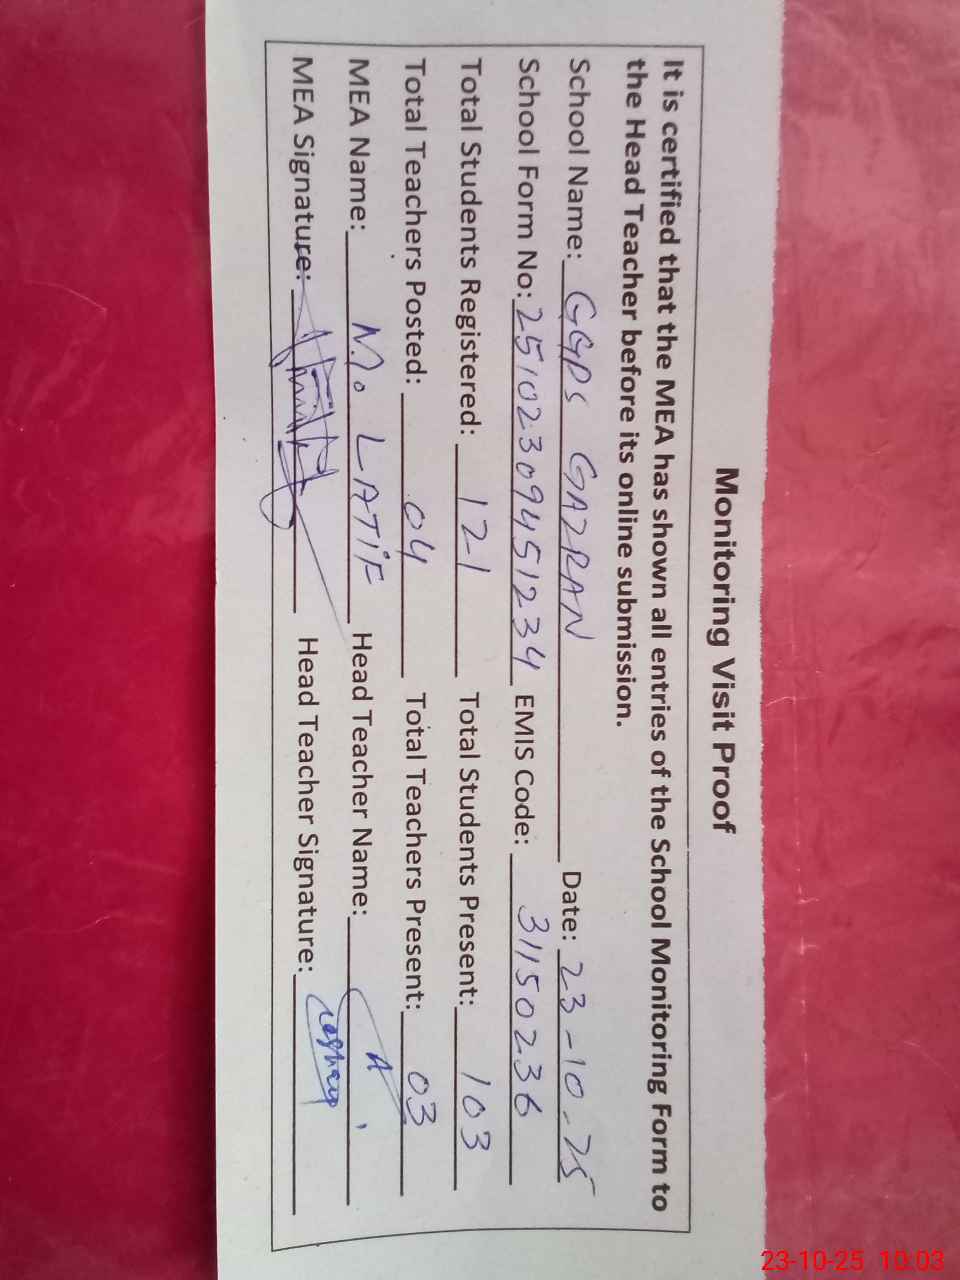 Monitoring Visit Proof
It is certified that the MEA has shown all entries of the School Monitoring Form to
the Head Teacher before its online submission.
School Name: GGPS GAZRAN Date: 23-10-25
School Form No: 25102309451234 EMIS Code: 31150236
Total Students Registered: 121 Total Students Present: 103
Total Teachers Posted: 04 Total Teachers Present: 03
MEA Name: M. LATIF Head Teacher Name:
MEA Signature: Head Teacher Signature:
23-10-25 10:03